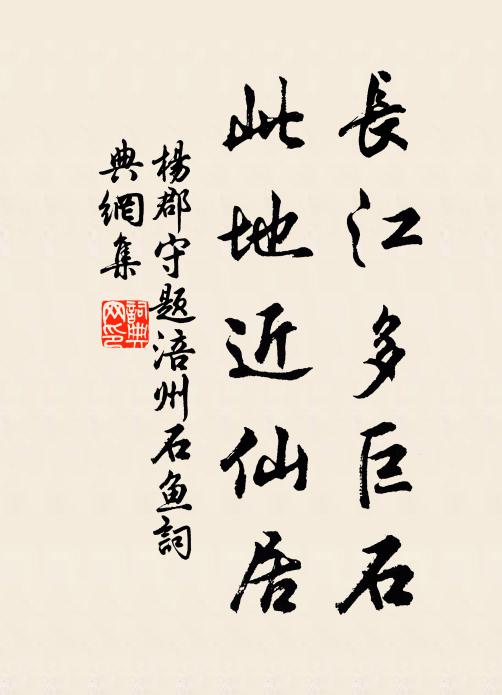 長江多巨石
此地近仙居
楊郡守題涪州石魚詞
典網集
詞典
网印